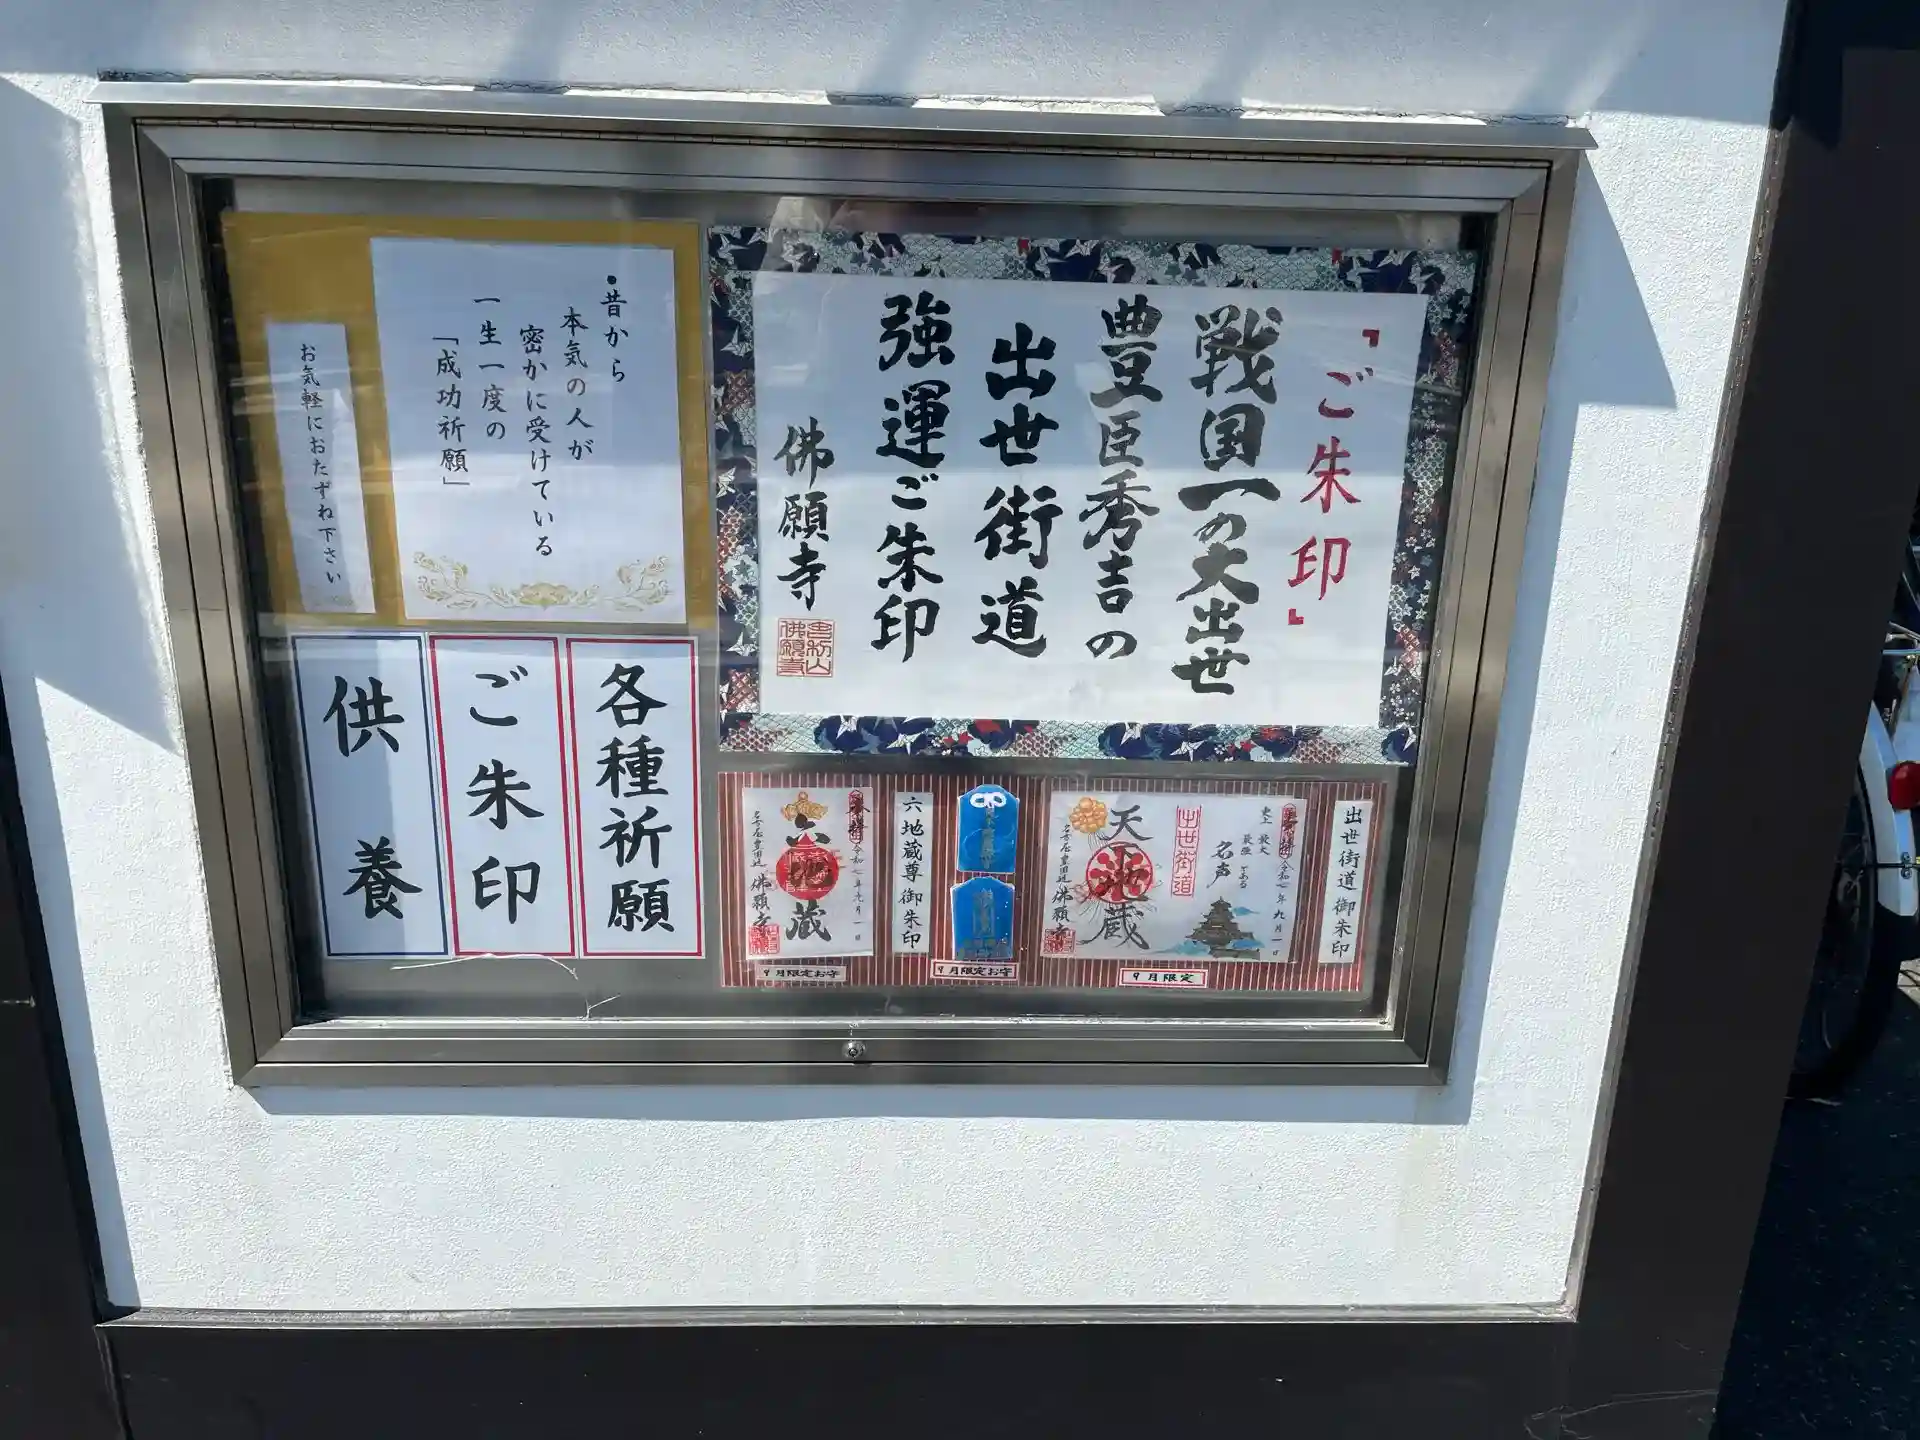 「ご朱印」
戦国一の大出世
豊臣秀吉の
出世街道
強運ご朱印
佛願寺
•昔から
本気の人が
密かに受けている
一生一度の
「成功祈願」
お気軽におたずね下さい
各種祈願
ご朱印
供養
出世街道御朱印
令和七年九月一日
史上最大
最強である
名声
出世街道
天下地蔵
佛願寺
9月限定
9月限定お守
六地蔵尊御朱印
令和七年九月一日
六地蔵
佛願寺
9月限定お守